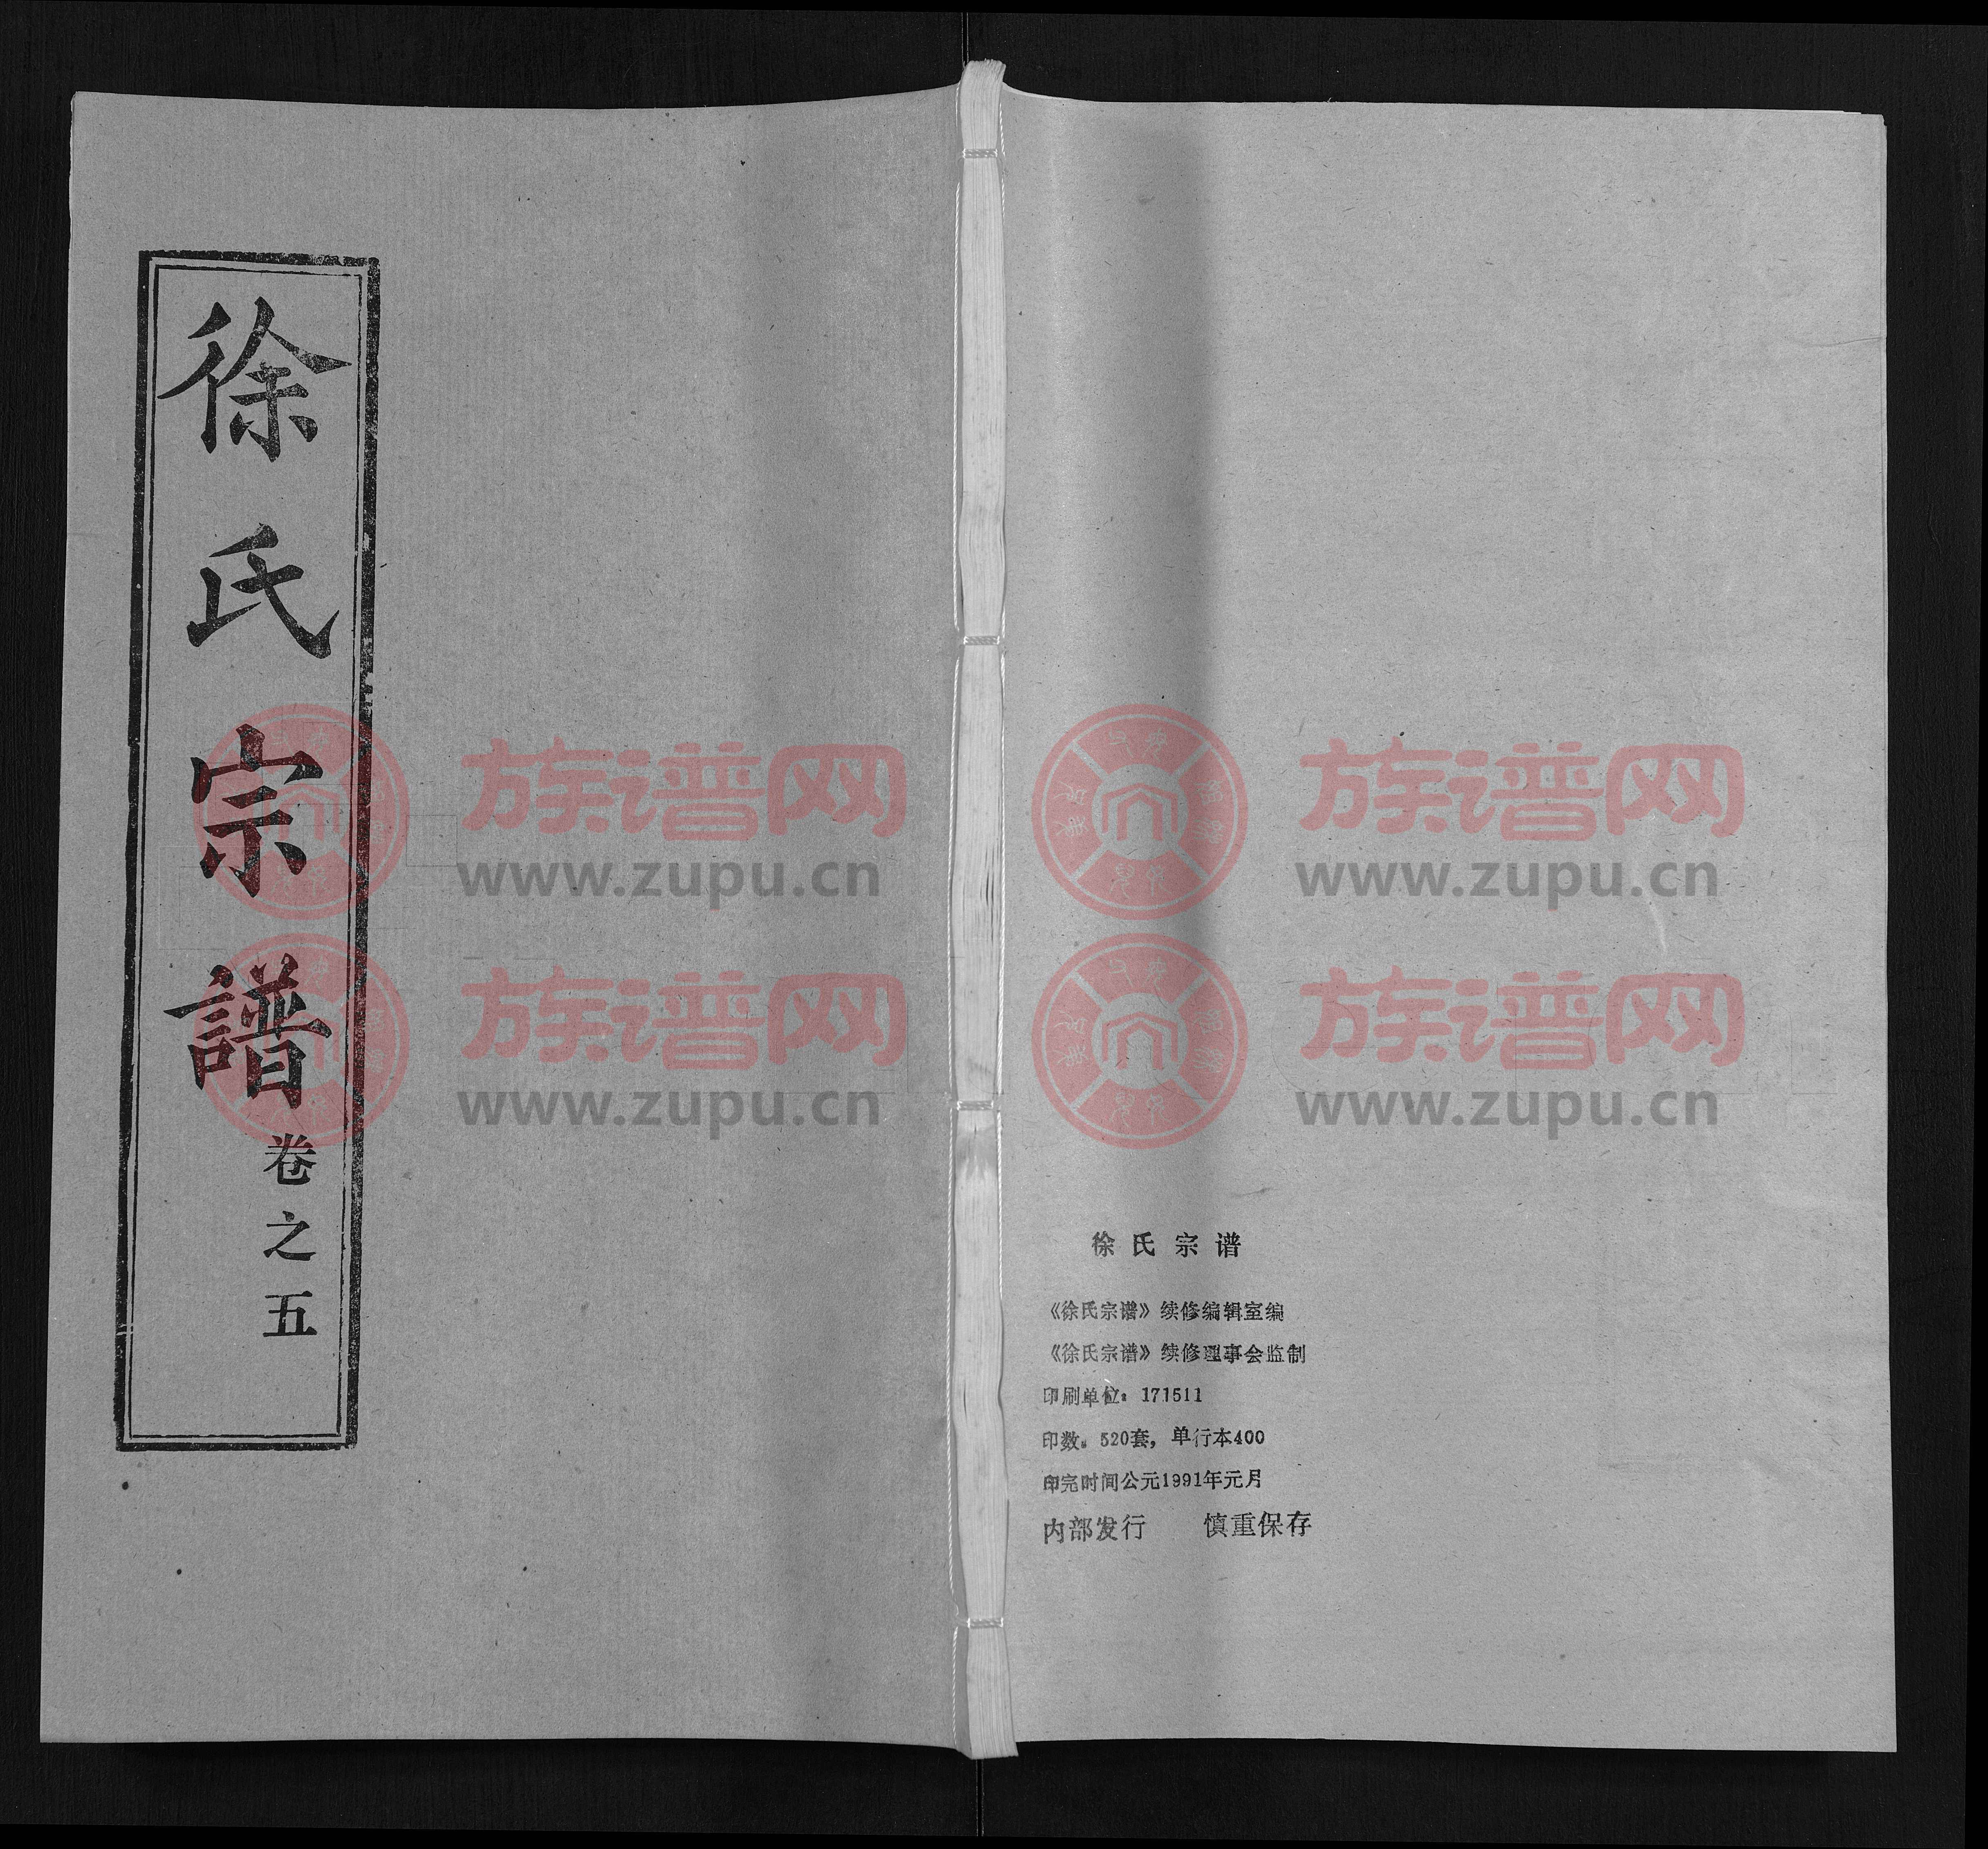 徐氏宗譜
卷之五
族谱网
www.zupu.cn
族谱网
www.zupu.cn
族谱网
www.zupu.cn
族谱网
www.zupu.cn
徐氏宗谱
《徐氏宗谱》续修编辑室编
《徐氏宗谱》续修理事会监制
印刷单位：171511
印数：520套，单行本400
印完时间公元1991年元月
内部发行 慎重保存